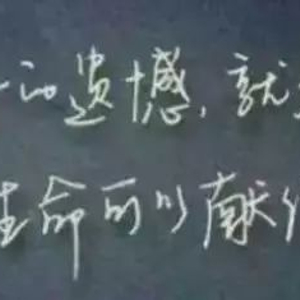 一的遗憾，就
生命可以献